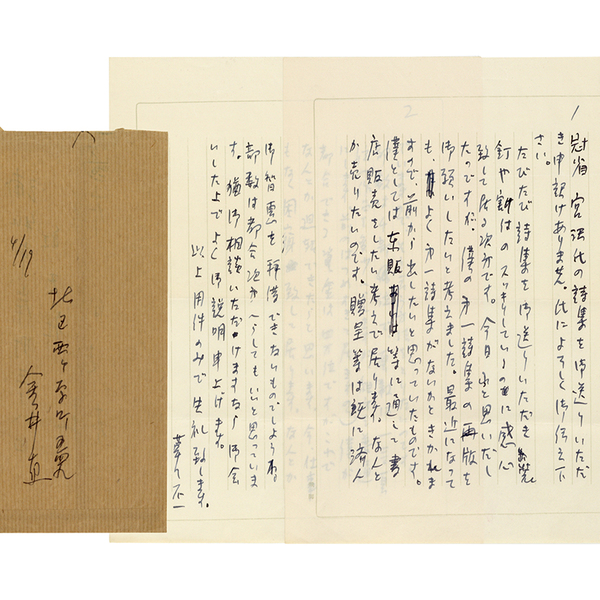 1
冠省 宮沢氏の詩集を御送りいただ
き申訳けありません。氏によろしく御伝え下
さい。
たびたび詩集を御送りいただき
釘や餅はのスッキリしているのに感心
致して居る次第です。今日 ふと思いだし
たのですが、僕の第一詩集の再版を
御願いしたいと考えました。最近になって
も、よく第一詩集がないかときかれま
すので、前から出したいと思っていたものです。
僕としては東販 等に通じて書
店販売をしたい考えで居ります。なんと
か売りたいのです。贈呈等は既に済ん
2
御智恵を拝借できないものでしょうかね
部数は都合次第でどうしてもいいと思っていま
す。猶御相談いただけますなら御会
いした上でよく御説明申上げます。
以上用件のみで失礼致します。
草々不一
4/19
北区西ヶ原町
今井直